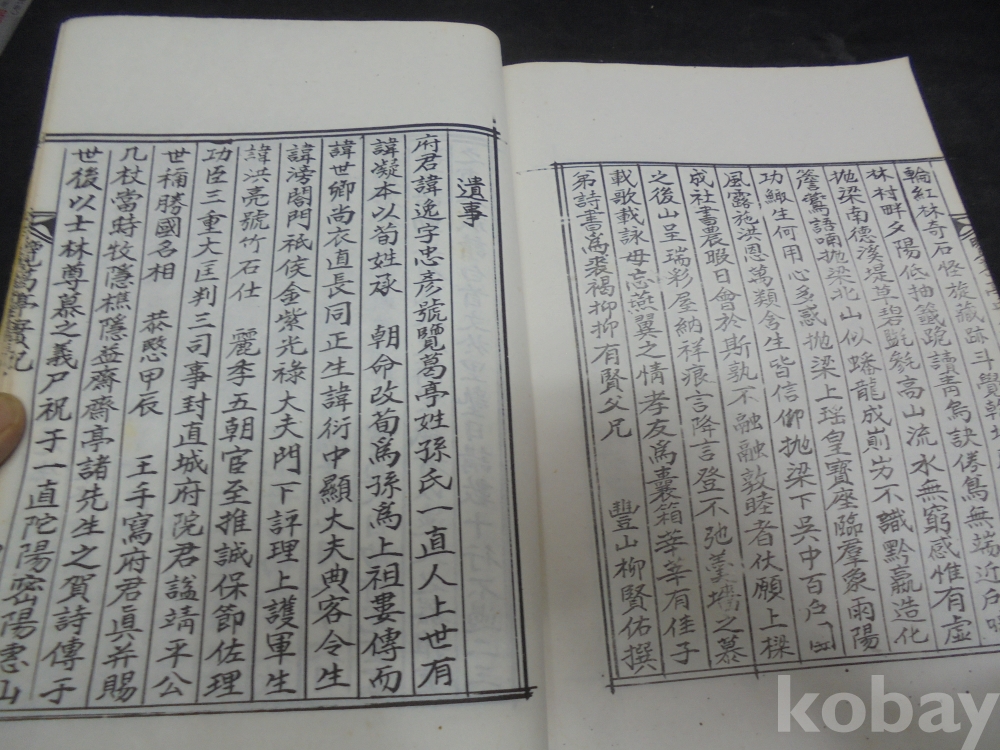 輪紅林奇石怪旋藏跡斗覺朝
林村畔夕陽低抽籤跪讀靑烏訣倦鳥無端近戶啼
抛梁南德溪堤草碧毿毿高山流水無窮感惟有虛
簷鸎語喃抛梁北山似蟠龍成崱屴不識黔羸造化
功鯫生何用心多感抛梁上瑶皇寶座臨羣象雨陽
風露施洪恩萬類含生皆信仰抛梁下吳中百戶
成社書農暇日會於斯孰不融融敦睦者伏願上樑
之後山呈瑞彩屋納祥痕言降言登不弛羹墻之慕
載歌載詠毋忘燕翼之情孝友爲囊箱莘莘有佳子
弟詩書爲裘褐抑抑有賢父兄
豐山柳賢佑撰
遺事
府君諱逸字忠彦號覽葛亭姓孫氏一直人上世有
諱凝本以荀姓承 朝命改荀爲孫爲上祖婁傳而
諱世卿尚衣直長同正生諱衍中顯大夫典客令生
諱滂閤門祗侯金紫光祿大夫門下評理上護軍生
諱洪亮號竹石仕 麗季五朝官至推誠保節佐理
功臣三重大匡判三司事封直城府院君謚靖平公
世稱勝國名相 恭愍甲辰 王手寫府君眞并賜
几杖當時牧隱樵隱益齋齋亭諸先生之賀詩傳于
世後以士林尊慕之義尸祝于一直陀陽密陽惠山
葛亭實記
kobay